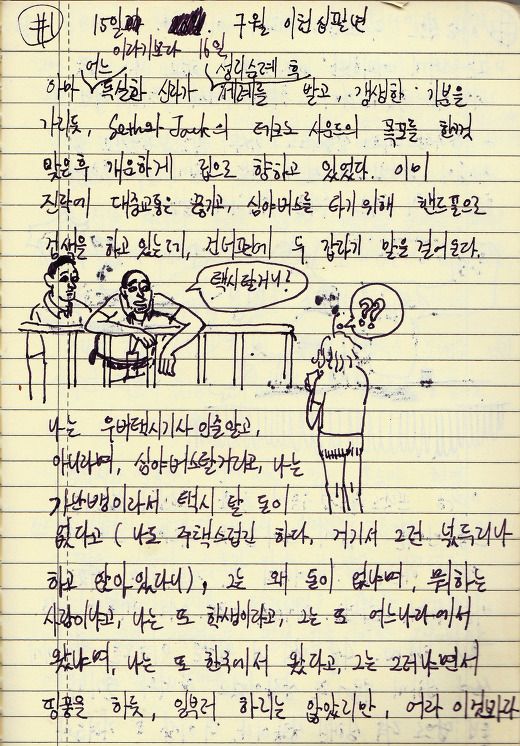 #1 15일 구월 이천십팔년
이라기보다 16일
어느 성지순례 후
아마 독실한 신자가 세례를 받고, 갱생한 기분을
가지듯, Seth와 Jack의 테크노 사운드의 폭포를 한껏
맞은후 개운하게 집으로 향하고 있었다. 이미
진작에 대중교통은 끊기고, 심야버스를 타기위해 핸드폰으로
검색을 하고있는데, 건너편에 두 깜라기 말을 걸어온다.
택시탈거니?
??
나는 우버택시기사 인줄알고,
아니라며, 심야버스탈거라고, 나는
가난뱅이라서 택시 탈 돈이
없다고 (나도 주책스럽긴 하다, 거기서 그런 넋두리나
하고 앉아있다니), 그는 왜 돈이 없냐며, 뭐하는
사람이냐고, 나는 또 학생이라고, 그는 또 어느나라에서
왔냐며, 나는 또 한국에서 왔다고, 그는 그러냐면서
핑퐁을 하듯, 일부러 하려는 않았지만, 어라 이것봐라